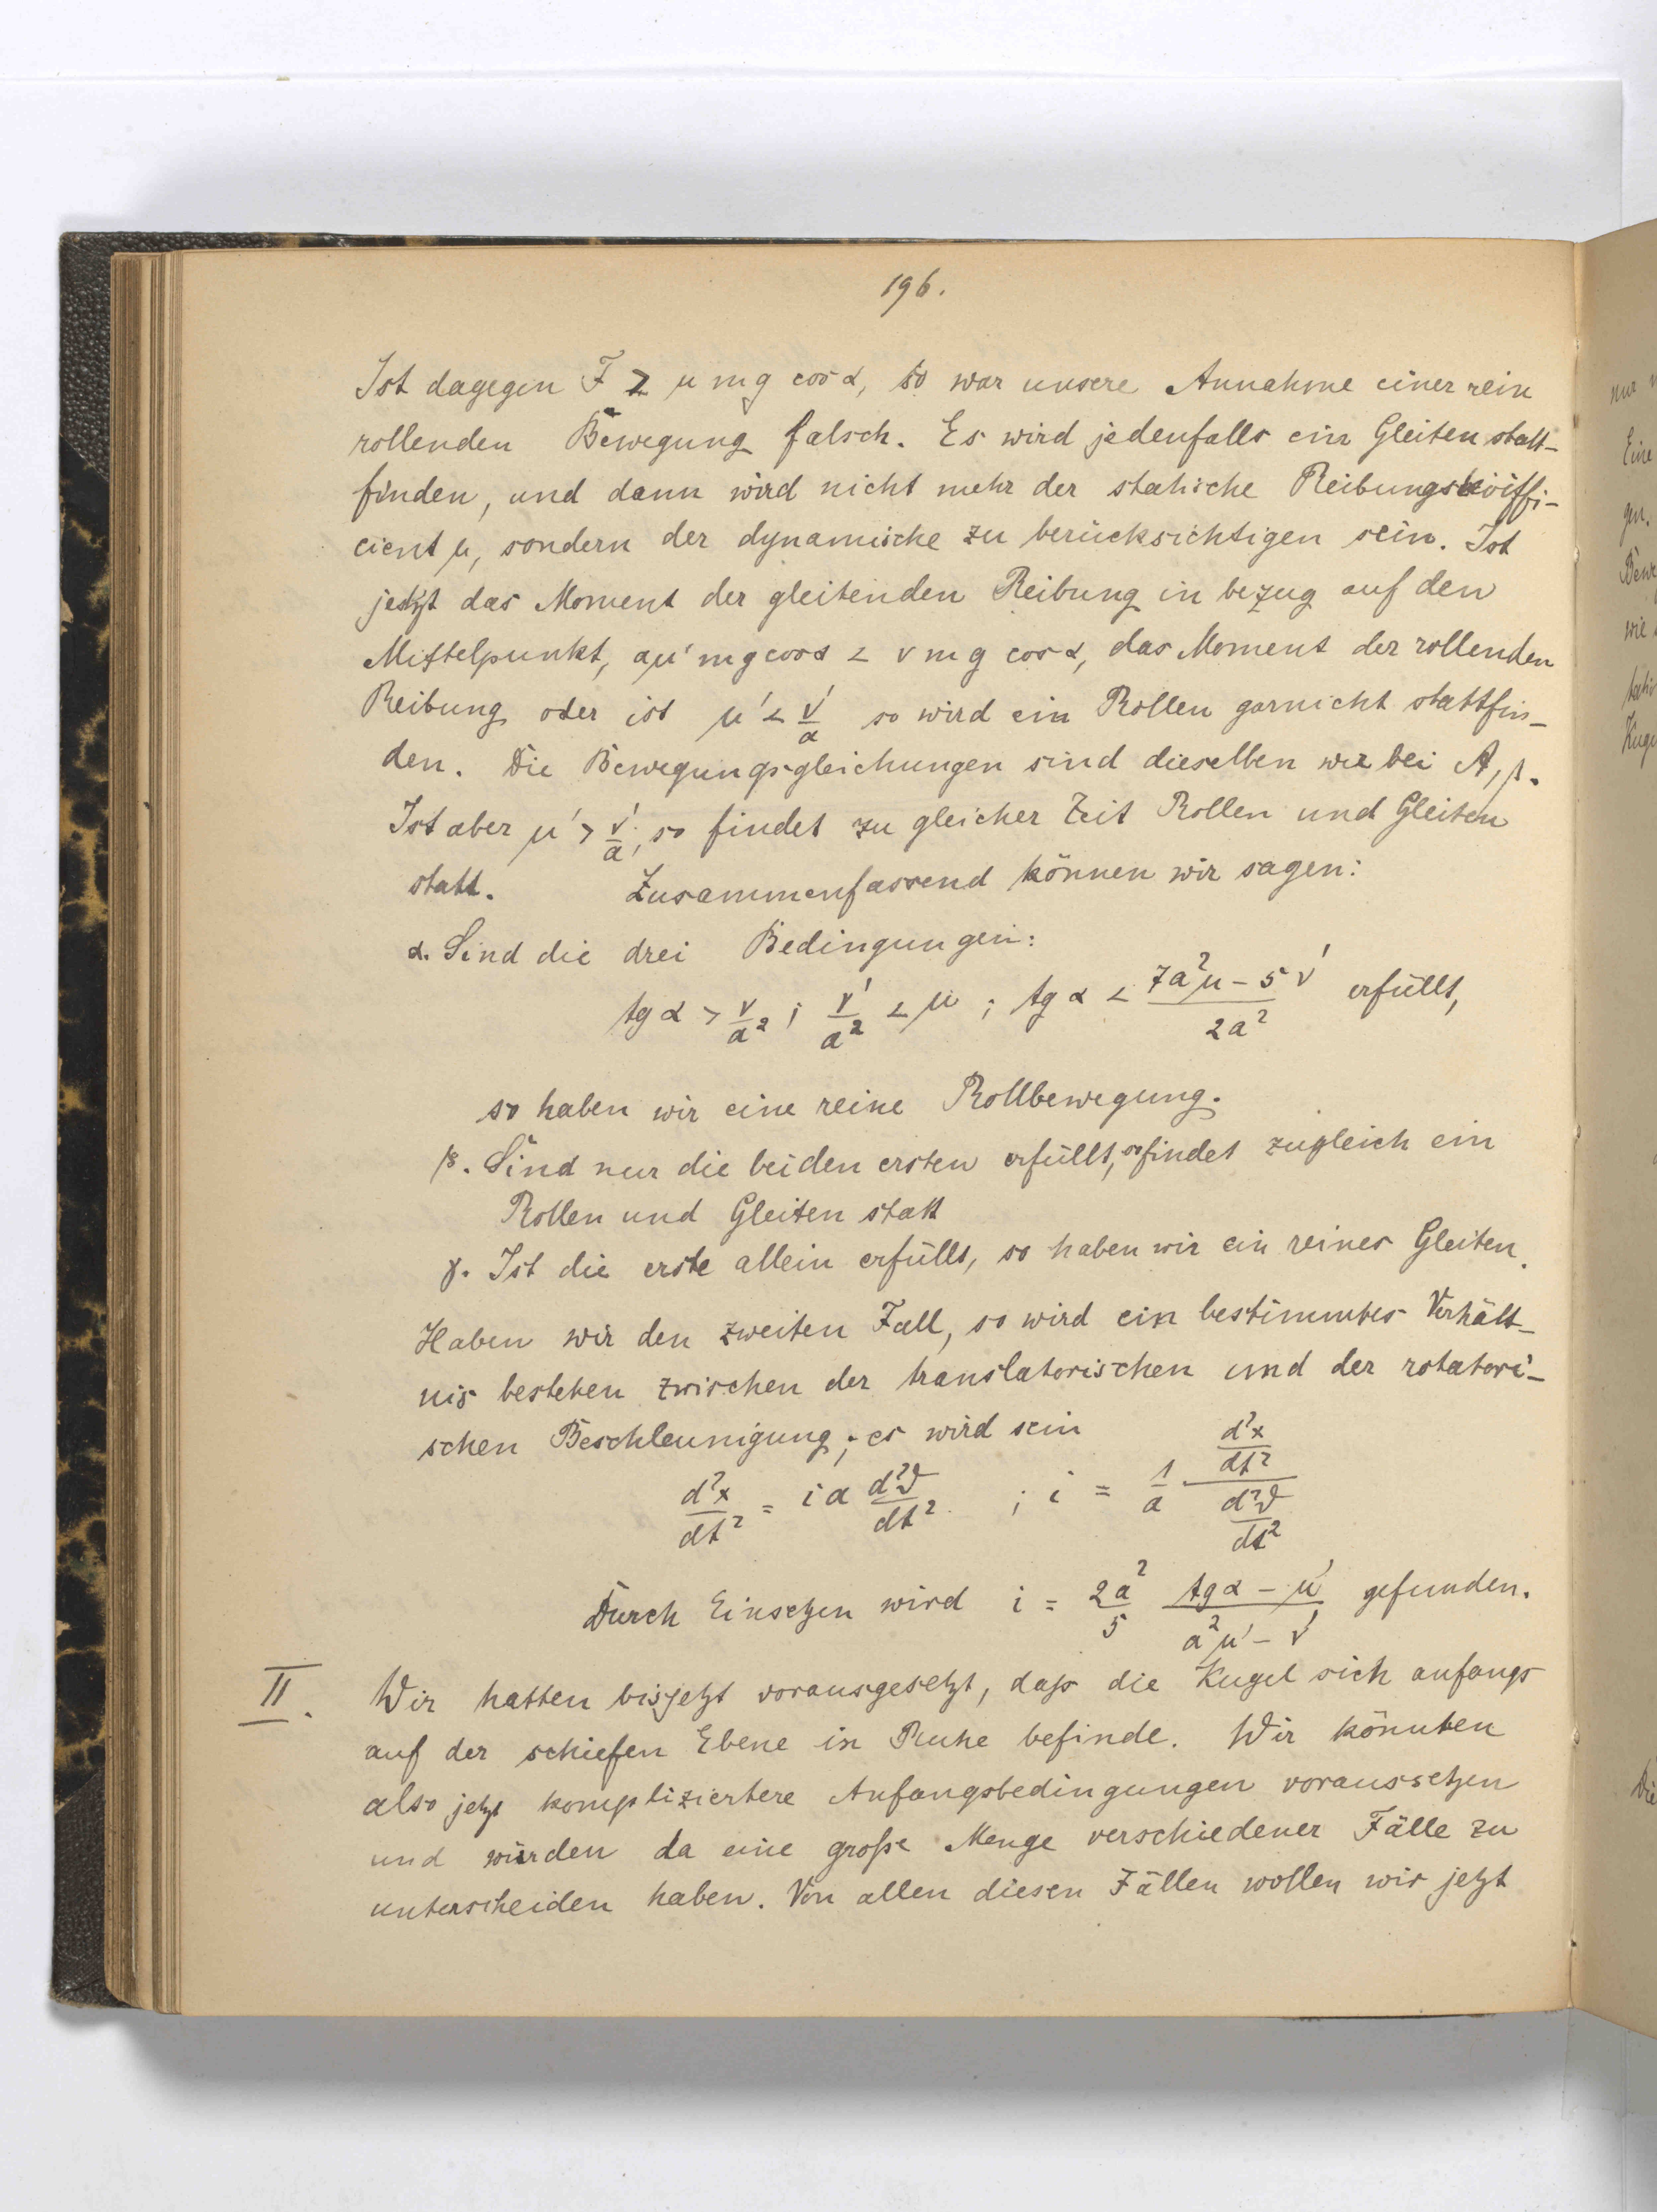 196.
Ist dagegen F > μ m g cos α, so war unsere Annahme einer rein
rollenden Bewegung falsch. Es wird jedenfalls ein Gleiten statt-
finden, und dann wird nicht mehr der statische Reibungskoëffi-
cient μ, sondern der dynamische zu berücksichtigen sein. Ist
jetzt das Moment der gleitenden Reibung in bezug auf den
Mittelpunkt, aμ' m g cos α < ν m g cos α, das Moment der rollenden
Reibung oder ist μ' < ν'/a so wird ein Rollen garnicht stattfin-
den. Die Bewegungsgleichungen sind dieselben wie bei A, β.
Ist aber μ' > ν'/a, so findet zu gleicher Zeit Rollen und Gleiten
statt. Zusammenfassend können wir sagen:
α. Sind die drei Bedingungen:
tg α > ν/a² ; ν'/a² < μ ; tg α < (7a²μ - 5ν')/2a² erfüllt,
so haben wir eine reine Rollbewegung.
β. Sind nur die beiden ersten erfüllt, so findet zugleich ein
Rollen und Gleiten statt
γ. Ist die erste allein erfüllt, so haben wir ein reines Gleiten.
Haben wir den zweiten Fall, so wird ein bestimmtes Verhält-
nis bestehen zwischen der translatorischen und der rotatori-
schen Beschleunigung; es wird sein
d²x/dt² = i a d²ϑ/dt² ; i = 1/a (d²x/dt²)/(d²ϑ/dt²)
Durch Einsetzen wird i = 2a²/5 (tg α - μ')/(a²μ' - ν') gefunden.
II. Wir hatten bis jetzt vorausgesetzt, daß die Kugel sich anfangs
auf der schiefen Ebene in Ruhe befinde. Wir könnten
also jetzt kompliziertere Anfangsbedingungen voraussetzen
und würden da eine große Menge verschiedener Fälle zu
unterscheiden haben. Von allen diesen Fällen wollen wir jetzt